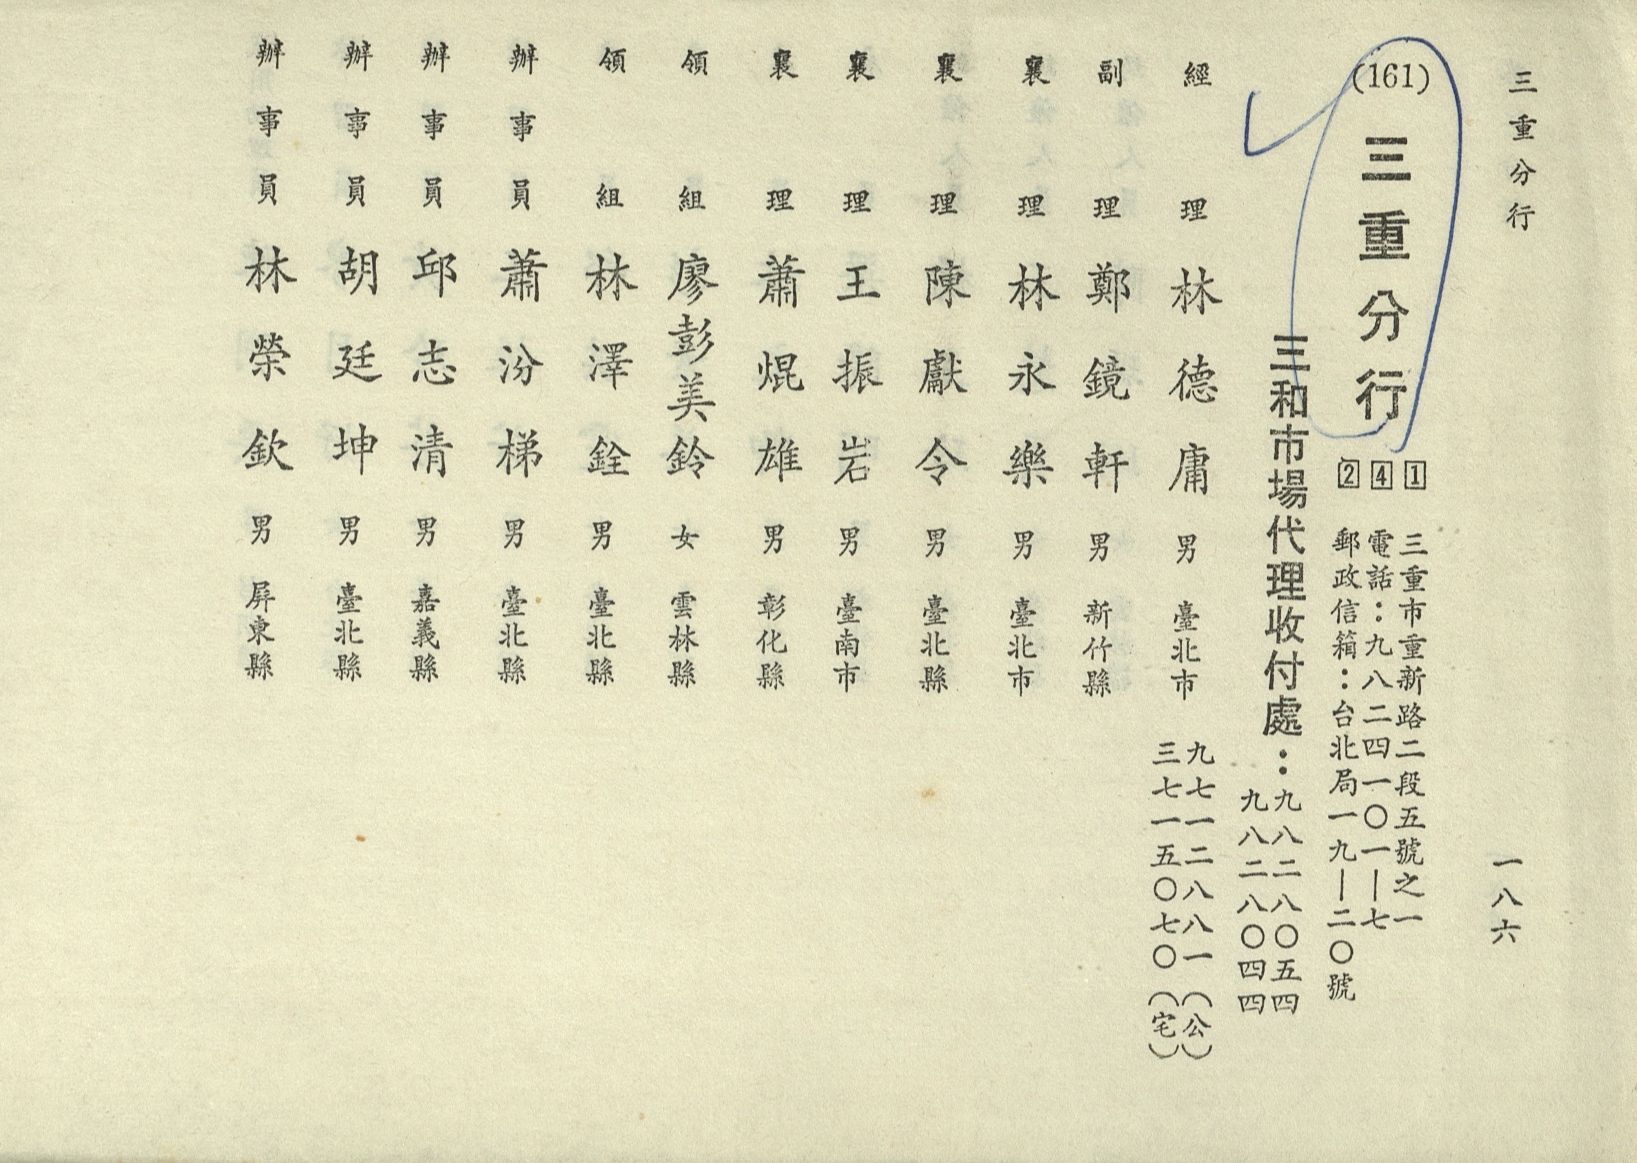 三重分行
一八六
(161) 三重分行
1 三重市重新路二段五號之一
4 電話：九八二四一〇一—七
2 郵政信箱：台北局一九—二〇號
三和市場代理收付處：九八二八〇五四
九八二八〇四四
經理 林德庸 男 臺北市 九七一二八八一（公）
三七一五〇七〇（宅）
副理 鄭鏡軒 男 新竹縣
襄理 林永樂 男 臺北市
襄理 陳獻令 男 臺北縣
襄理 王振岩 男 臺南市
襄理 蕭焜雄 男 彰化縣
領組 廖彭美鈴 女 雲林縣
領組 林澤銓 男 臺北縣
辦事員 蕭汾梯 男 臺北縣
辦事員 邱志清 男 嘉義縣
辦事員 胡廷坤 男 臺北縣
辦事員 林榮欽 男 屏東縣